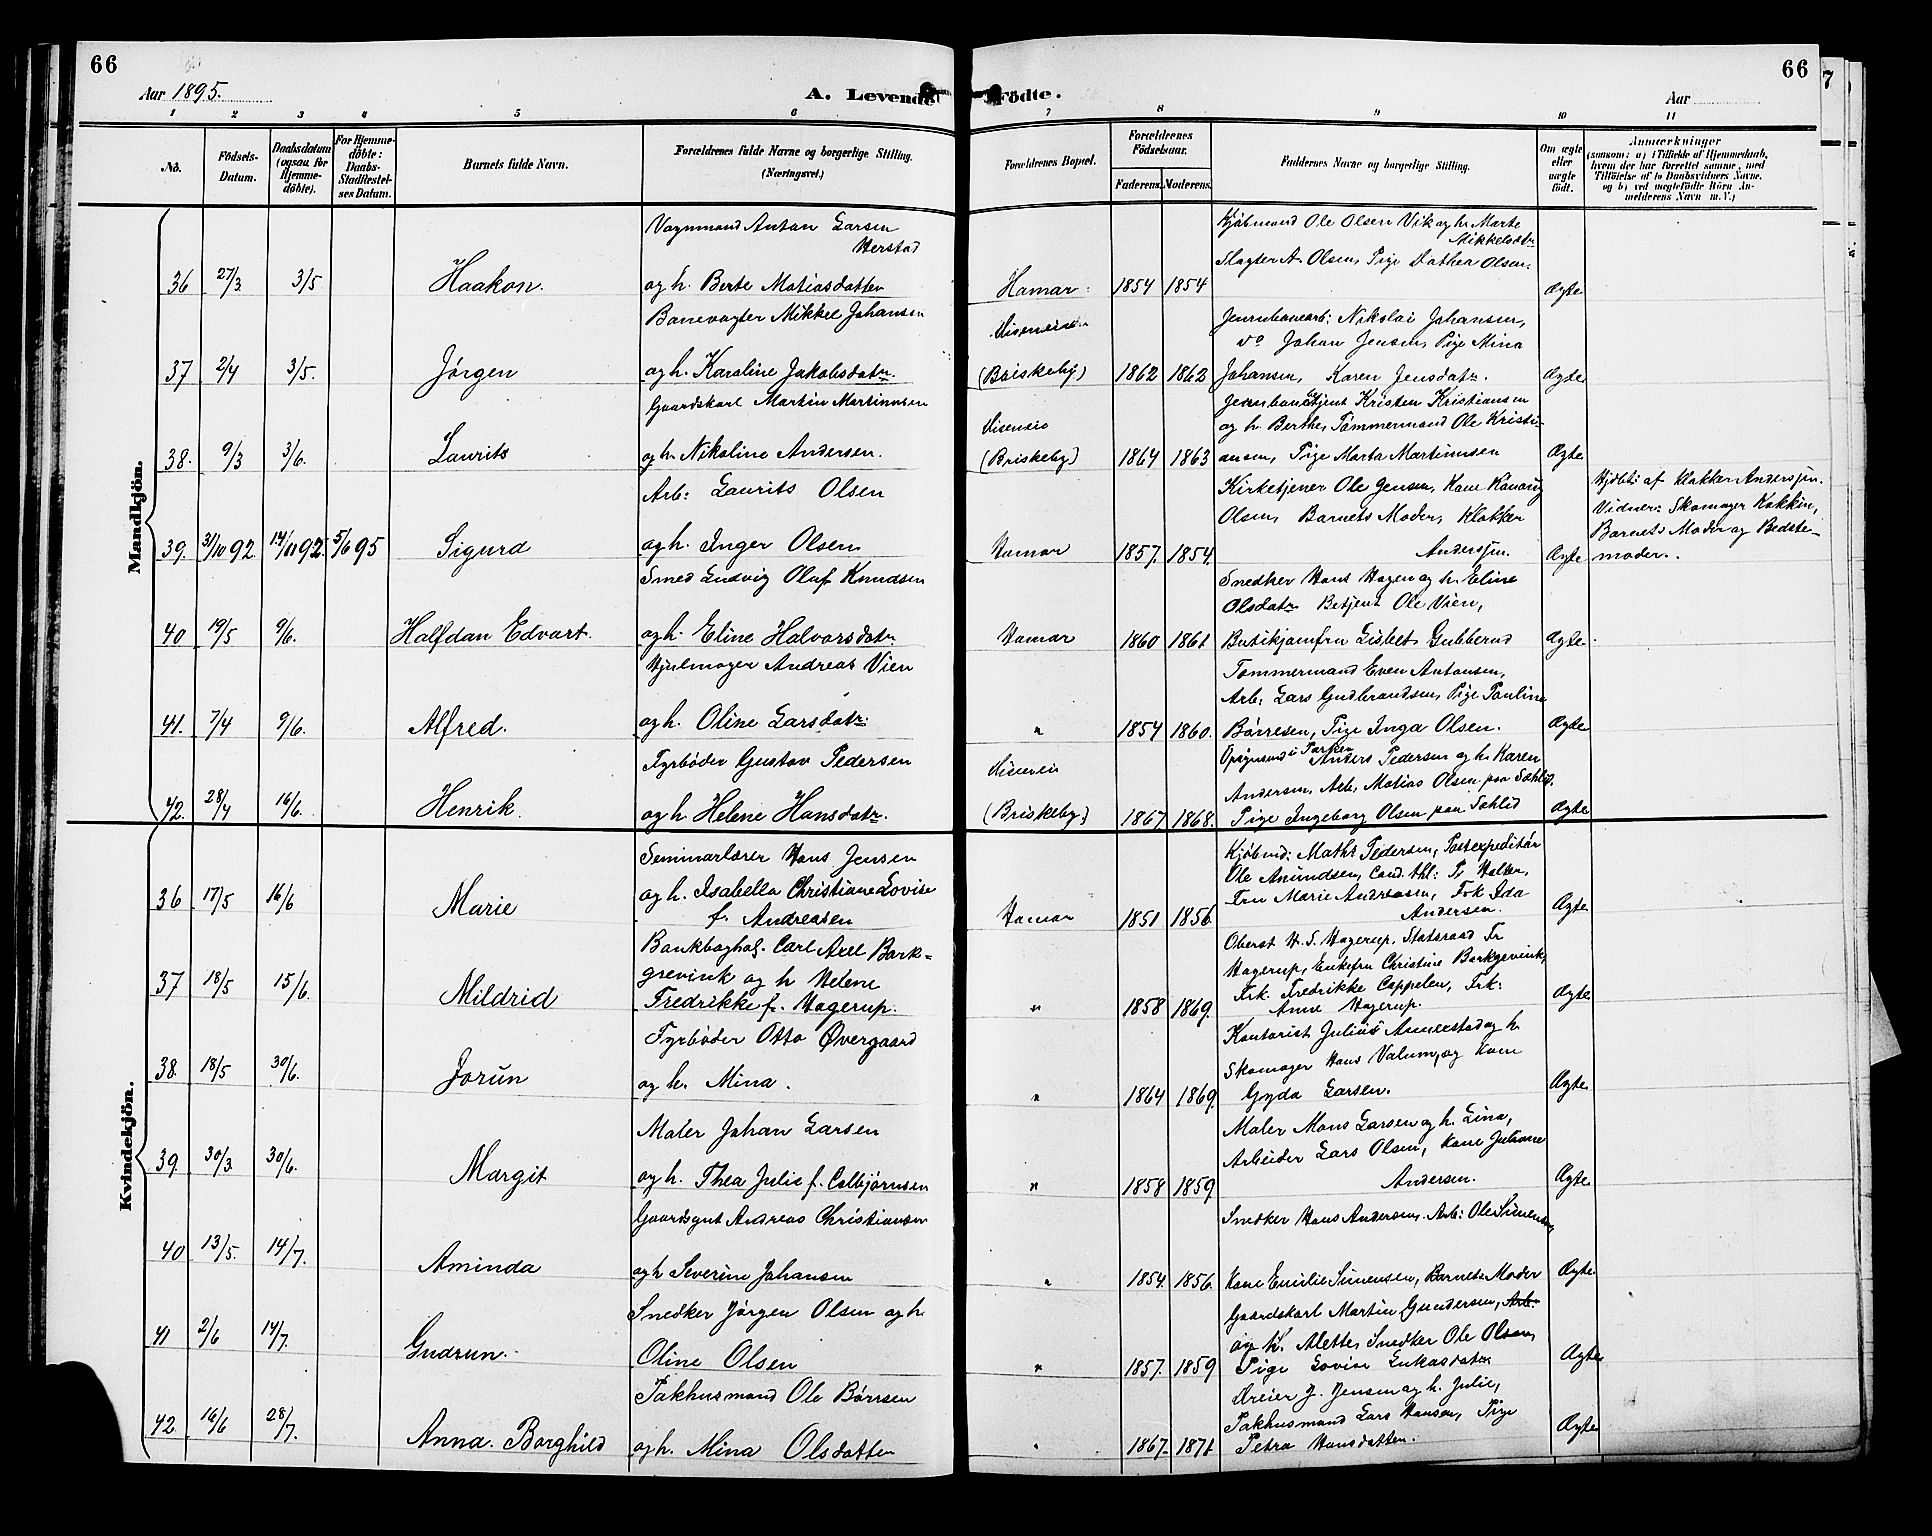 66
Aar 1895.
A. Levende
1 2 3 4 5 6
No.
Födsels-Datum.
Daabsdatum (ogsaa for Hjemme-döbte).
For Hjemme-döbte: Daabs-Stadfæstel-ses Datum.
Barnets fulde Navn.
Forældrenes fulde Navne og borgerlige Stilling. (Næringsvei.)
Födte.
66
Aar
7 8 9 10 11
Forældrenes Bopæl.
Forældrenes Födselsaar.
Faderens. Moderens.
Faddernes Navne og borgerlige Stilling.
Om ægte eller uægte födt.
Anmærkninger
(saasom: a) i Tilfælde af Hjemmedaab,
hvem der har forrettet samme, med
Tilföielse af to Daabsvidners Navne,
og b) ved uægtefödte Börn An-
melderens Navn m. V.)
Mandkjön.
Vognmand Anton Larsen
Herstad
36 27/3 3/5 Haakon. og h. Berte Matiasdatter
Hamar. 1854 1854
Kjøbmand Ole Olsen Vik og h. Marte
Mikkelsdtr
Slagter A. Olsen, Pige Dothea Olsen.
Ægte
Banevogter Mikkel Johansen
37 2/4 3/5. Jørgen og h. Karoline Jakobsdatr.
(Briskeby) 1862 1862
Jernbanearb: Nikolai Johansen,
do Johan Jensen, Pige Mina
Johansen, Karen Jensdatr.
Ægte
Gaardskarl Martin Martinusen
38. 9/3 3/6. Laurits og h. Nikoline Andersen.
(Briskeby) 1864 1863
Jernbanebetjent Kristen Kristiansen
og h. Berthe, Tømmermand Ole Kristi-
ansen, Pige Marta Martinusen
Ægte
Arb: Laurits Olsen
39. 31/10 92. 14/11 92. 5/6 95 Sigurd og h. Inger Olsen
Hamar 1857. 1854.
Kirketjener Ole Jensen, Kone
Olsen, Barnets Moder, Klokker
Anderssen.
Ægte
Hjdbt: af Klokker Anderssen.
Vidner: Skomager Kokkin,
Barnets Moder og Bedste-
moder.
Smed Ludvig Olaf Knudsen
40 19/5 9/6. Halfdan Edvart. og h. Eline Halvorsdatr
Hamar 1860 1861
Snedker Hans Hagen og h. Eline
Olsdatr Betjent Ole Vien,
Butikjomfru Lisbet Gubberud
Ægte.
Hjulmager Andreas Vien
41. 7/4 9/6. Alfred. og h. Oline Larsdatr.
" 1854 1860.
Tømmermand Even Antonsen,
Arb. Lars Gudbrandsen, Pige Pauline
Børresen, Pige Inga Olsen.
Ægte
Fyrbøder Gustav Pedersen
42. 28/4 16/6. Henrik. og h. Helene Hansdatr.
(Briskeby) 1867 1868.
Opsynsmd i Parken Anders Pedersen og h. Karen
Andersen, Arb. Matias Olsen paa Sæhlid,
Pige Ingeborg Olsen paa Sæhlid
Ægte
Kvindekjön.
Seminarlærer Hans Jensen
36 17/5 16/6 Marie og h. Isabella Christiane Lovise
f. Andreasen
Hamar 1851 1856
Kjøbmd: Maths Pedersen, Postexpeditør
Ole Amundsen, Cand. thl: Fr Holter,
Fru Marie Andreasen, Frk Ida
Andersen.
Ægte
Bankboghol. Carl Axel Bork-
grevink og h Helene
37 18/5 15/6. Mildrid Fredrikke f. Hagerup.
" 1858 1869.
Oberst H. S. Hagerup, Statsraad Fr
Hagerup, Enkefru Christine Borkgrevink,
Frk. Fredrikke Cappelen, Frk:
Anna Hagerup.
Ægte
Fyrbøder Otto Øvergaard
38. 18/5 30/6. Jorun og h. Mina.
" 1864 1869.
Kontorist Julius Annerstad og h.
Skomager Hans Valum, og Kone
Gyda Larsen.
Ægte
Maler Johan Larsen
39. 30/3. 30/6. Margit og h. Thea Julie f. Colbjørnsen
" 1858 1859
Maler Mons Larsen og h. Lina,
Arbeider Lars Olsen, Kone Juliane
Andersen.
Ægte
Gaardsgut Andreas Christiansen
40 13/5. 14/7. Aminda og h Severine Johansen
" 1854. 1856.
Snedker Hans Andersen, Arb: Ole Simensen,
Kone Emilie Simensen, Barnets Moder
Ægte
Snedker Jørgen Olsen og h.
41 2/6 14/7. Gudrun. Oline Olsen
" 1857. 1859
Gaardskarl Martin Gundersen, Arb.
og h. Alette, Snedker Ole Olsen,
Pige Lovise Lukasdatr
Ægte
Pakhusmand Ole Børrsen
42. 16/6 28/7. Anna Borghild og h. Mina Olsdatter
" 1867. 1871
Dreier J. Jensen og h. Julie,
Pakhusmand Lars Hansen, Pige
Petra Hansdatter.
Ægte